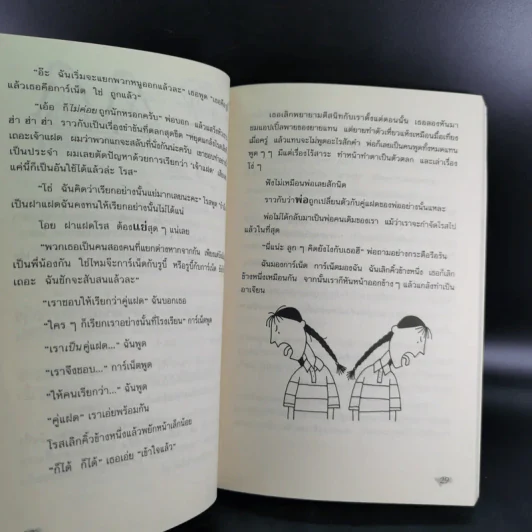 “อ๊ะ ฉันเริ่มจะแยกพวกหนูออกแล้วละ” เธอพูด
แล้วเธอคือการ์เน็ต ใช่ ถูกแล้ว”
“เอ้อ ก็ไม่ค่อยถูกนักหรอกครับ” พ่อบอก แล้วแสร้งหัวเราะ
ฮ่า ฮ่า ฮ่า ราวกับเป็นเรื่องขำขันที่ตลกสุดขีด
เถอะเจ้าแฝด ผมว่าพวกแกจะสลับที่นั่งกันน่ะครับ
เป็นประจำ ผมเลยตัดปัญหาด้วยการเรียกว่า ‘เจ้าแฝด’
แค่นี้ก็เป็นอันใช้ได้แล้วล่ะ โรส”
“โธ่ ฉันคิดว่าเรียกอย่างนั้นแย่มากเลยนะคะ” โรสพูด
เป็นฝาแฝดฉันคงทนให้เรียกอย่างนั้นไม่ได้แน่
โอย ฝาแฝดโรส ต้องแย่สุด ๆ แน่เลย
“พวกเธอเป็นคนสองคนที่แยกต่างหากจากกัน
เป็นพี่น้องกัน ใช่ไหมจ๊ะการ์เน็ตกับรูบี้ หรือรูบี้กับการ์เน็ต
เถอะ ฉันชักจะสับสนแล้วละ”
“เราชอบให้เรียกว่าคู่แฝด” ฉันบอกเธอ
“ใคร ๆ ก็เรียกเราอย่างนั้นที่โรงเรียน” การ์เน็ตพูด
“เราเป็นคู่แฝด...” ฉันพูด
“เราจึงชอบ...” การ์เน็ตพูด
“ให้คนเรียกว่า...” ฉันพูด
“คู่แฝด” เราเอ่ยพร้อมกัน
โรสเลิกคิ้วข้างหนึ่งแล้วพยักหน้าเล็กน้อย
“ก็ได้ ก็ได้” เธอเอ่ย “เข้าใจแล้ว”
เธอเลิกพยายามตีสนิทกับเราตั้งแต่ตอนนั้น เธอลองหันมา
ชมแอปเปิ้ลพายของยายแทน แต่ยายทำตัวเที่ยงแห้งเหมือนมื้อเที่ยง
เมื่อครู่ แล้วแทบจะไม่พูดอะไรสักคำ พ่อก็เลยเป็นคนพูดทั้งหมดแทน
พูด ๆ ๆ มีแต่เรื่องไร้สาระ ทำหน้าทำตาเป็นตัวตลก และเล่าเรื่อง
โง่ ๆ
ฟังไม่เหมือนพ่อเลยสักนิด
ราวกับว่าพ่อถูกเปลี่ยนตัวกับคู่แฝดของพ่ออย่างนั้นแหละ
พ่อไม่ได้กลับมาเป็นพ่อคนเดิมของเรา แม้ว่าเราจะกำจัดโรสไป
แล้วในที่สุด
“นี่แน่ะ ลูก ๆ คิดยังไงกับเธอฮึ” พ่อถามอย่างกระตือรือร้น
ฉันมองการ์เน็ต การ์เน็ตมองฉัน ฉันเลิกคิ้วข้างหนึ่ง เธอก็เลิก
ข้างหนึ่งเหมือนกัน จากนั้นเราก็หันหน้าออกข้าง ๆ แล้วแกล้งทำเป็น
อาเจียน
29